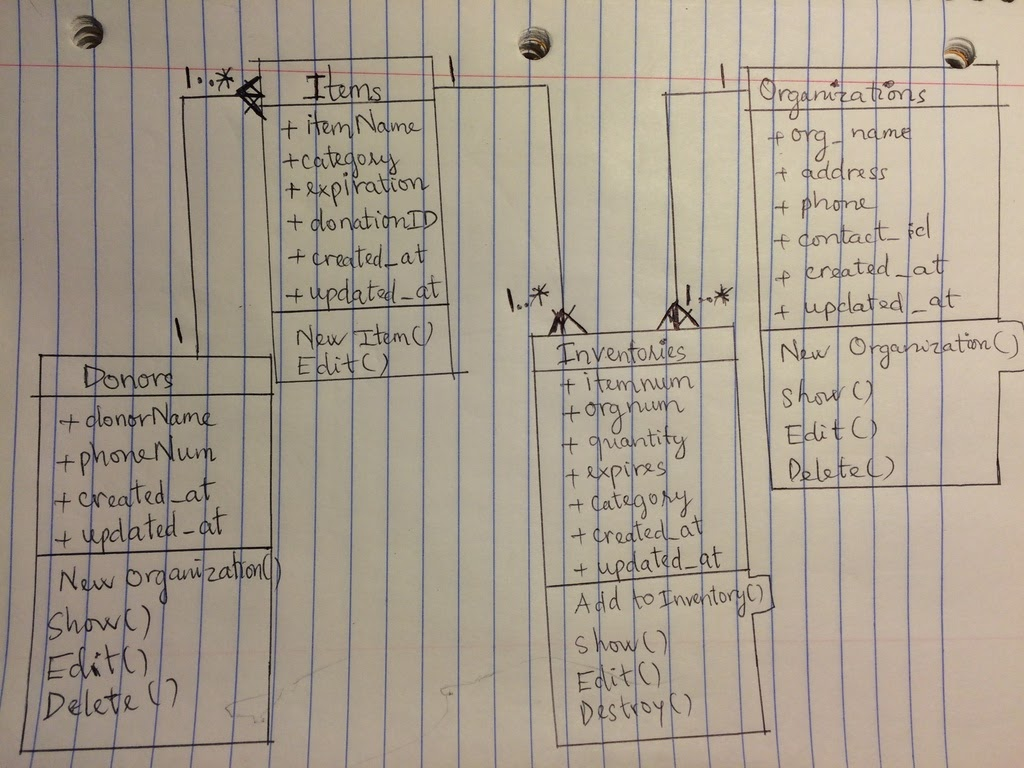 1..*
Items
+ itemName
+ category
+ expiration
+ donationID
+ created_at
+ updated_at
New Item()
Edit()
1
1
Organizations
+ org_name
+ address
+ phone
+ contact_id
+ created_at
+ updated_at
New Organization()
Show()
Edit()
Delete()
1
Donors
+ donorName
+ phoneNum
+ created_at
+ updated_at
New Organization()
Show()
Edit()
Delete()
1..*
1..*
Inventories
+ itemnum
+ orgnum
+ quantity
+ expires
+ category
+ created_at
+ updated_at
Add to Inventory()
Show()
Edit()
Destroy()